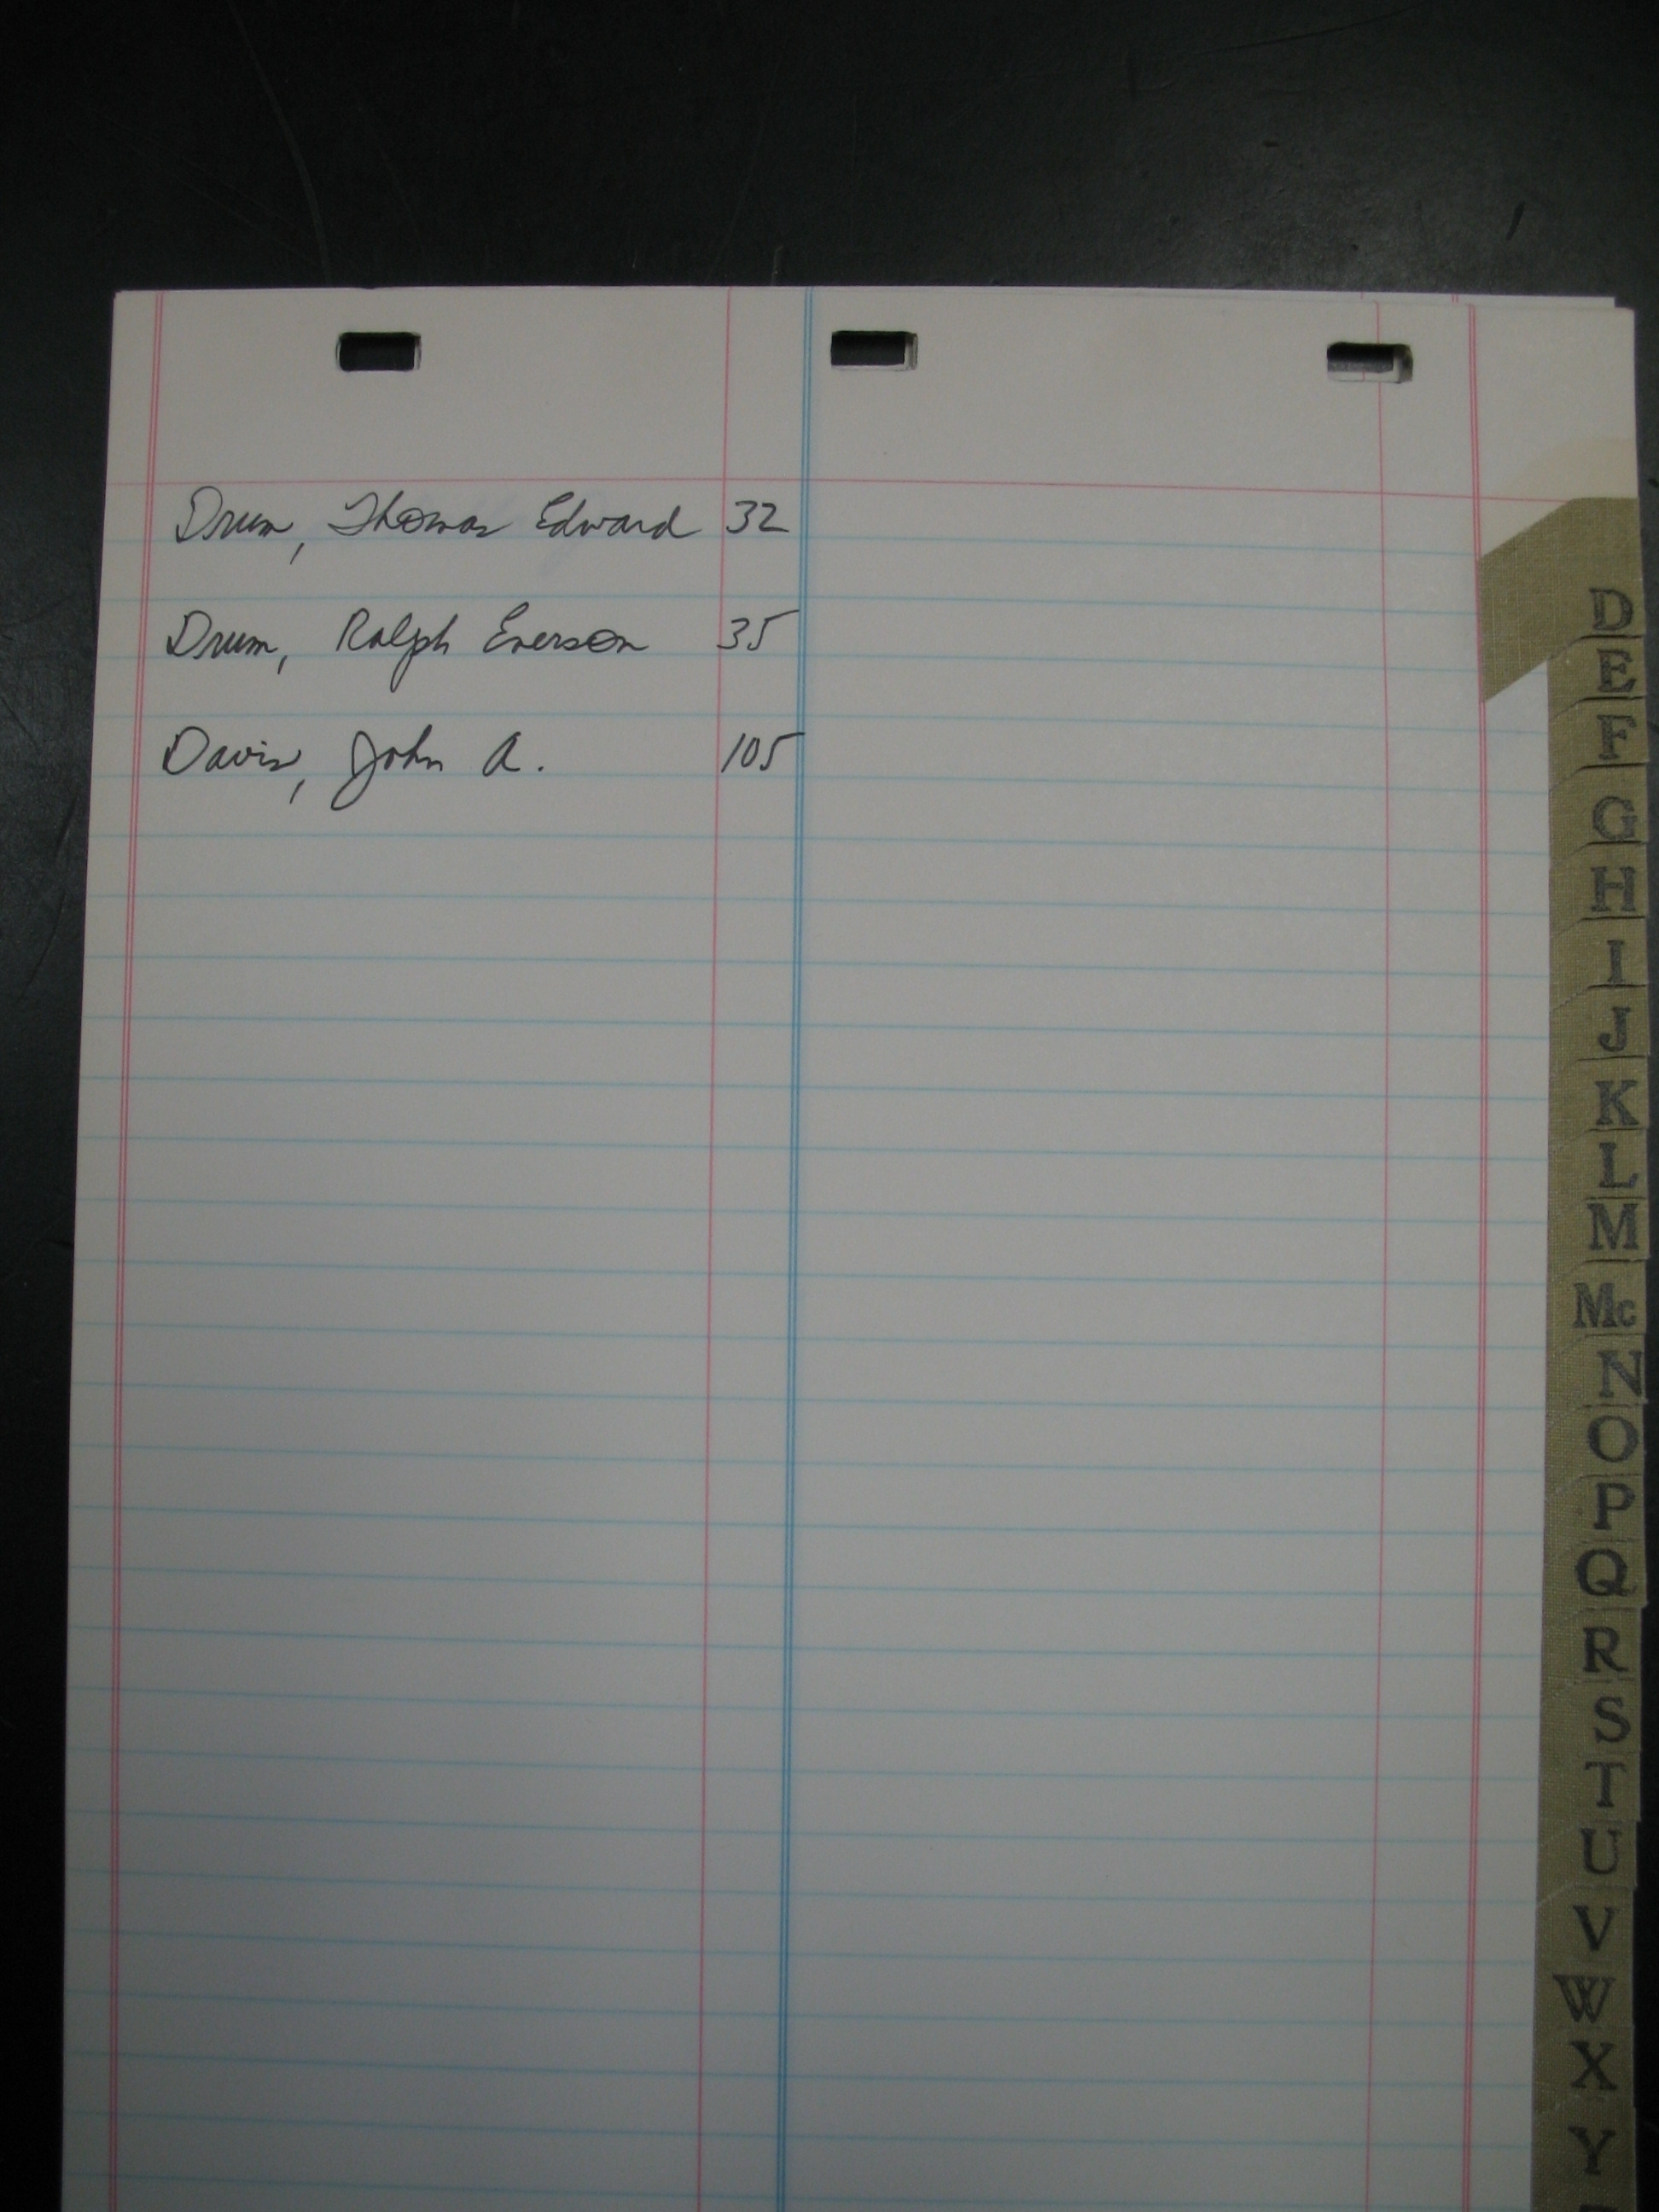 Drum, Thomas Edward 32
Drum, Ralph Everson 35
Davis, John A. 105
D
E
F
G
H
I
J
K
L
M
Mc
N
O
P
Q
R
S
T
U
V
W
X
Y